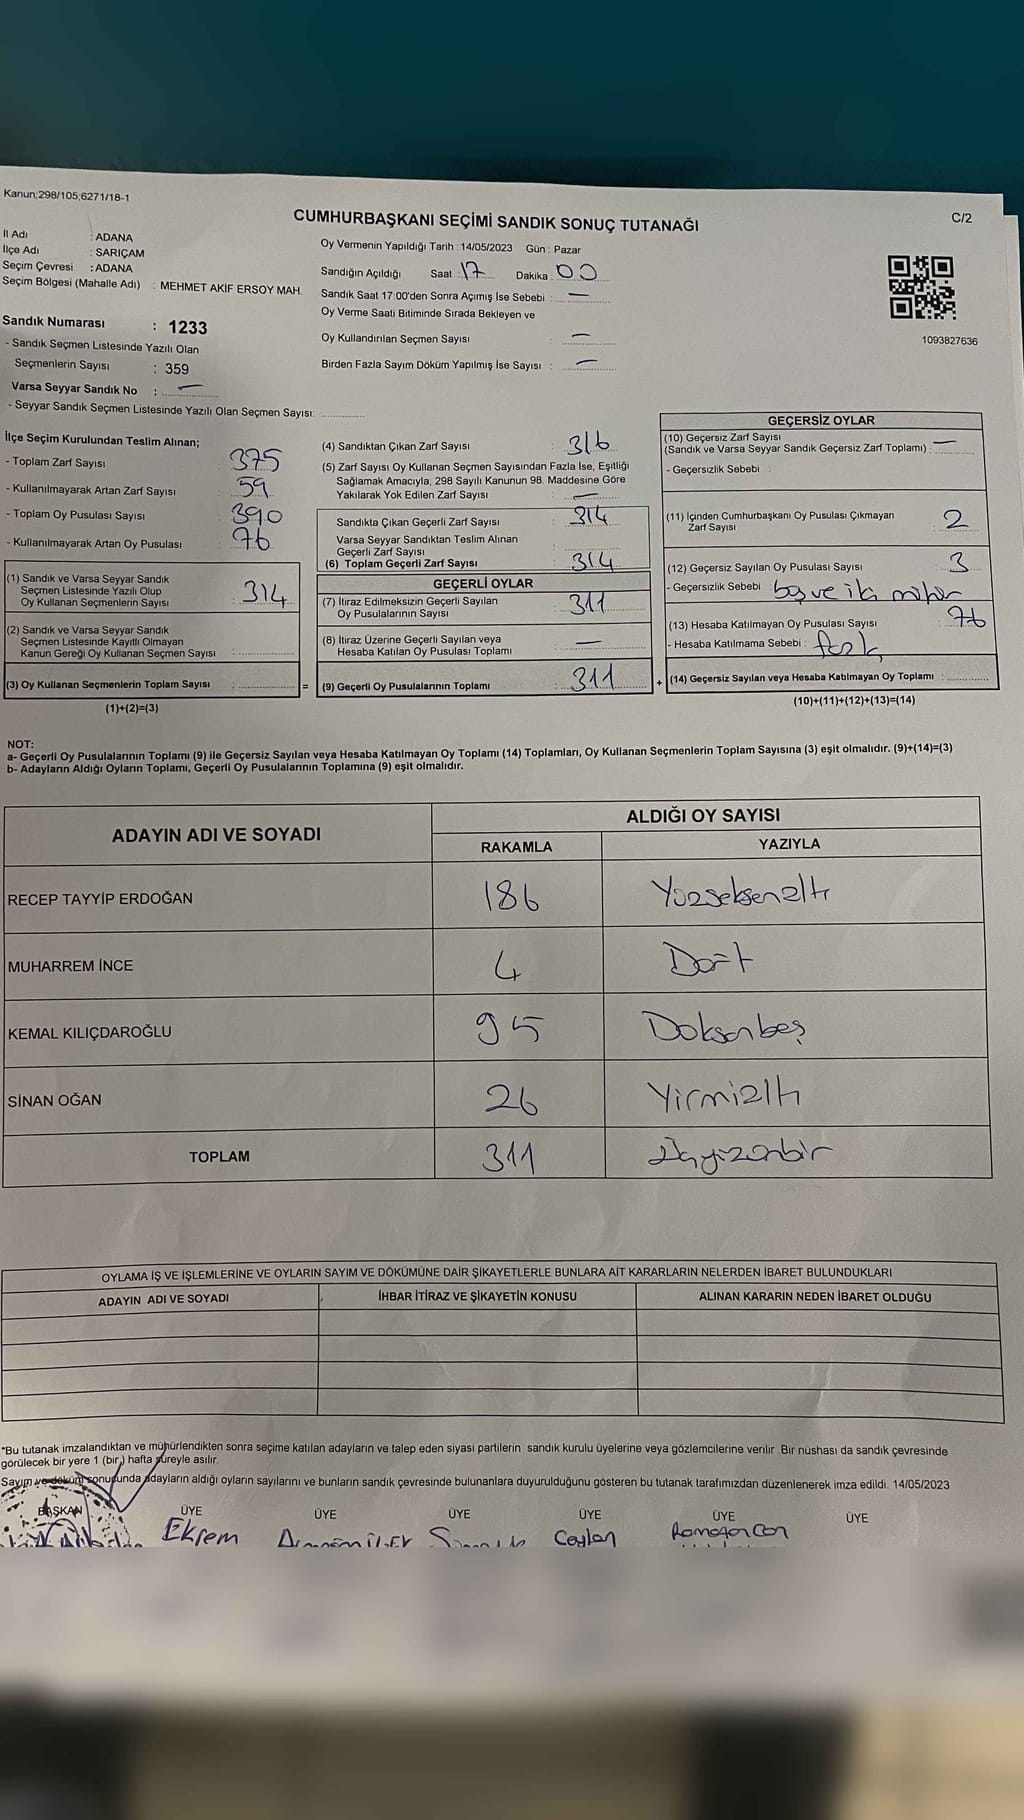 Kanun;298/105;6271/18-1
C/2
CUMHURBAŞKANI SEÇİMİ SANDIK SONUÇ TUTANAĞI
İl Adı : ADANA
İlçe Adı : SARIÇAM
Seçim Çevresi : ADANA
Seçim Bölgesi (Mahalle Adı) : MEHMET AKİF ERSOY MAH.
Sandık Numarası : 1233
- Sandık Seçmen Listesinde Yazılı Olan
Seçmenlerin Sayısı : 359
Varsa Seyyar Sandık No : —
- Seyyar Sandık Seçmen Listesinde Yazılı Olan Seçmen Sayısı:
Oy Vermenin Yapıldığı Tarih : 14/05/2023 Gün : Pazar
Sandığın Açıldığı Saat : 17 Dakika : 00
Sandık Saat 17:00'den Sonra Açımış İse Sebebi : —
Oy Verme Saati Bitiminde Sırada Bekleyen ve
Oy Kullandırılan Seçmen Sayısı : —
Birden Fazla Sayım Döküm Yapılmış İse Sayısı : —
1093827636
İlçe Seçim Kurulundan Teslim Alınan;
- Toplam Zarf Sayısı : 375
- Kullanılmayarak Artan Zarf Sayısı : 59
- Toplam Oy Pusulası Sayısı : 390
- Kullanılmayarak Artan Oy Pusulası : 76
(1) Sandık ve Varsa Seyyar Sandık
Seçmen Listesinde Yazılı Olup
Oy Kullanan Seçmenlerin Sayısı : 314
(2) Sandık ve Varsa Seyyar Sandık
Seçmen Listesinde Kayıtlı Olmayan
Kanun Gereği Oy Kullanan Seçmen Sayısı :
(3) Oy Kullanan Seçmenlerin Toplam Sayısı : =
(1)+(2)=(3)
(4) Sandıktan Çıkan Zarf Sayısı : 316
(5) Zarf Sayısı Oy Kullanan Seçmen Sayısından Fazla İse, Eşitliği
Sağlamak Amacıyla, 298 Sayılı Kanunun 98. Maddesine Göre
Yakılarak Yok Edilen Zarf Sayısı : —
Sandıkta Çıkan Geçerli Zarf Sayısı : 314
Varsa Seyyar Sandıktan Teslim Alınan
Geçerli Zarf Sayısı :
(6) Toplam Geçerli Zarf Sayısı : 314
GEÇERLİ OYLAR
(7) İtiraz Edilmeksizin Geçerli Sayılan
Oy Pusulalarının Sayısı : 311
(8) İtiraz Üzerine Geçerli Sayılan veya
Hesaba Katılan Oy Pusulası Toplamı : —
(9) Geçerli Oy Pusulalarının Toplamı : 311 +
GEÇERSİZ OYLAR
(10) Geçersiz Zarf Sayısı
(Sandık ve Varsa Seyyar Sandık Geçersiz Zarf Toplamı) : —
- Geçersizlik Sebebi :
(11) İçinden Cumhurbaşkanı Oy Pusulası Çıkmayan
Zarf Sayısı : 2
(12) Geçersiz Sayılan Oy Pusulası Sayısı : 3
- Geçersizlik Sebebi : boş ve iki mühür
(13) Hesaba Katılmayan Oy Pusulası Sayısı : 76
- Hesaba Katılmama Sebebi :
(14) Geçersiz Sayılan veya Hesaba Katılmayan Oy Toplamı :
(10)+(11)+(12)+(13)=(14)
NOT:
a- Geçerli Oy Pusulalarının Toplamı (9) ile Geçersiz Sayılan veya Hesaba Katılmayan Oy Toplamı (14) Toplamları, Oy Kullanan Seçmenlerin Toplam Sayısına (3) eşit olmalıdır. (9)+(14)=(3)
b- Adayların Aldığı Oyların Toplamı, Geçerli Oy Pusulalarının Toplamına (9) eşit olmalıdır.
ADAYIN ADI VE SOYADI
ALDIĞI OY SAYISI
RAKAMLA YAZIYLA
RECEP TAYYİP ERDOĞAN 186 Yüzseksenaltı
MUHARREM İNCE 4 Dört
KEMAL KILIÇDAROĞLU 95 Doksanbeş
SİNAN OĞAN 26 Yirmialtı
TOPLAM 311 Üçyüzonbir
OYLAMA İŞ VE İŞLEMLERİNE VE OYLARIN SAYIM VE DÖKÜMÜNE DAİR ŞİKAYETLERLE BUNLARA AİT KARARLARIN NELERDEN İBARET BULUNDUKLARI
ADAYIN ADI VE SOYADI İHBAR İTİRAZ VE ŞİKAYETİN KONUSU ALINAN KARARIN NEDEN İBARET OLDUĞU
*Bu tutanak imzalandıktan ve mühürlendikten sonra seçime katılan adayların ve talep eden siyasi partilerin sandık kurulu üyelerine veya gözlemcilerine verilir. Bir nüshası da sandık çevresinde
görülecek bir yere 1 (bir) hafta süreyle asılır.
Sayım ve döküm sonucunda adayların aldığı oyların sayılarını ve bunların sandık çevresinde bulunanlara duyurulduğunu gösteren bu tutanak tarafımızdan düzenlenerek imza edildi. 14/05/2023
BAŞKAN ÜYE ÜYE ÜYE ÜYE ÜYE ÜYE
Ekrem Ceylan Ramazan Can